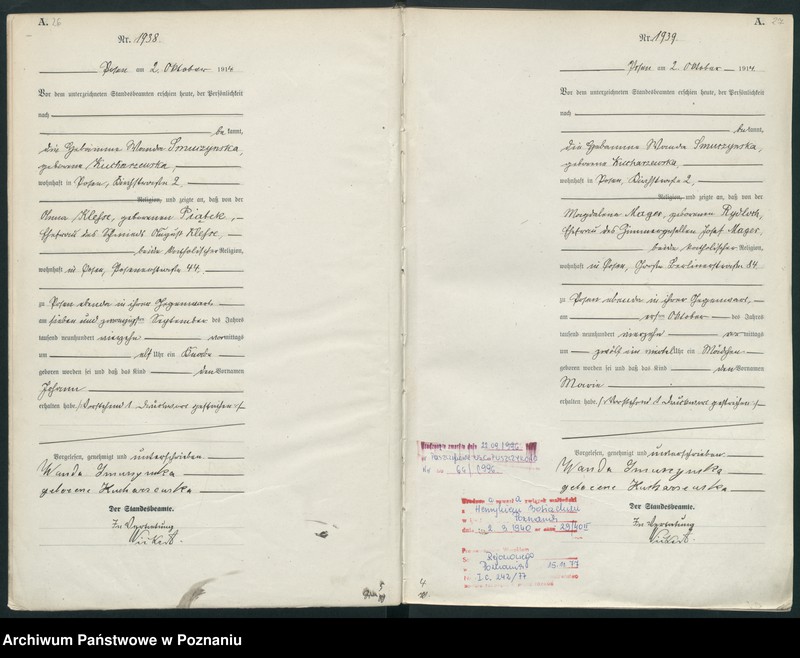 A. 26
Nr. 1938
Posen am 2. Oktober 1914
Vor dem unterzeichneten Standesbeamten erschien heute, der Persönlichkeit
nach
be kannt,
die Hebamme Wanda Smuczynska,
geborene Kucharzewska
wohnhaft in Posen,
Religion, und zeigte an, daß von der
Anna Klesse, geborenen Piątek,
Ehefrau des Schmieds August Klesse,
beide katholischer Religion,
wohnhaft in Posen, Posenerstraße 44,
zu Posen ebenda in ihrer Gegenwart
am sieben und zwanzigsten September des Jahres
tausend neunhundert vierzehn vormittags
um elf Uhr ein Knabe
geboren worden sei und daß das Kind den Vornamen
Johann
erhalten habe. Vorstehend 1 Druckwort gestrichen
Vorgelesen, genehmigt und unterschrieben
Wanda Smuczynska
geborene Kucharzewska
Der Standesbeamte.
In Vertretung
A.
Nr. 1939
Posen am 2. Oktober 1914
Vor dem unterzeichneten Standesbeamten erschien heute, der Persönlichkeit
nach
be kannt,
die Hebamme Wanda Smuczynska,
geborene Kucharzewska
wohnhaft in Posen,
Religion, und zeigte an, daß von der
Magdalena Mager, geborenen
Ehefrau des Zimmergesellen Josef Mager,
beide katholischer Religion,
wohnhaft in Posen, Große Berlinerstraße 84
zu Posen ebenda in ihrer Gegenwart,
am ersten Oktober des Jahres
tausend neunhundert vierzehn vormittags
um zwölf ein viertel Uhr ein Mädchen
geboren worden sei und daß das Kind den Vornamen
Marie
erhalten habe. Vorstehend 1 Druckwort gestrichen
Vorgelesen, genehmigt und unterschrieben
Wanda Smuczynska
geborene Kucharzewska
Der Standesbeamte.
In Vertretung
22.09.1996
64/1996
zawarł a związek małżeński
z Henrykiem
w
dnia 2 9 1940
Rejonowego
Poznaniu 15.11.77
I.C. 242/77
Archiwum Państwowe w Poznaniu